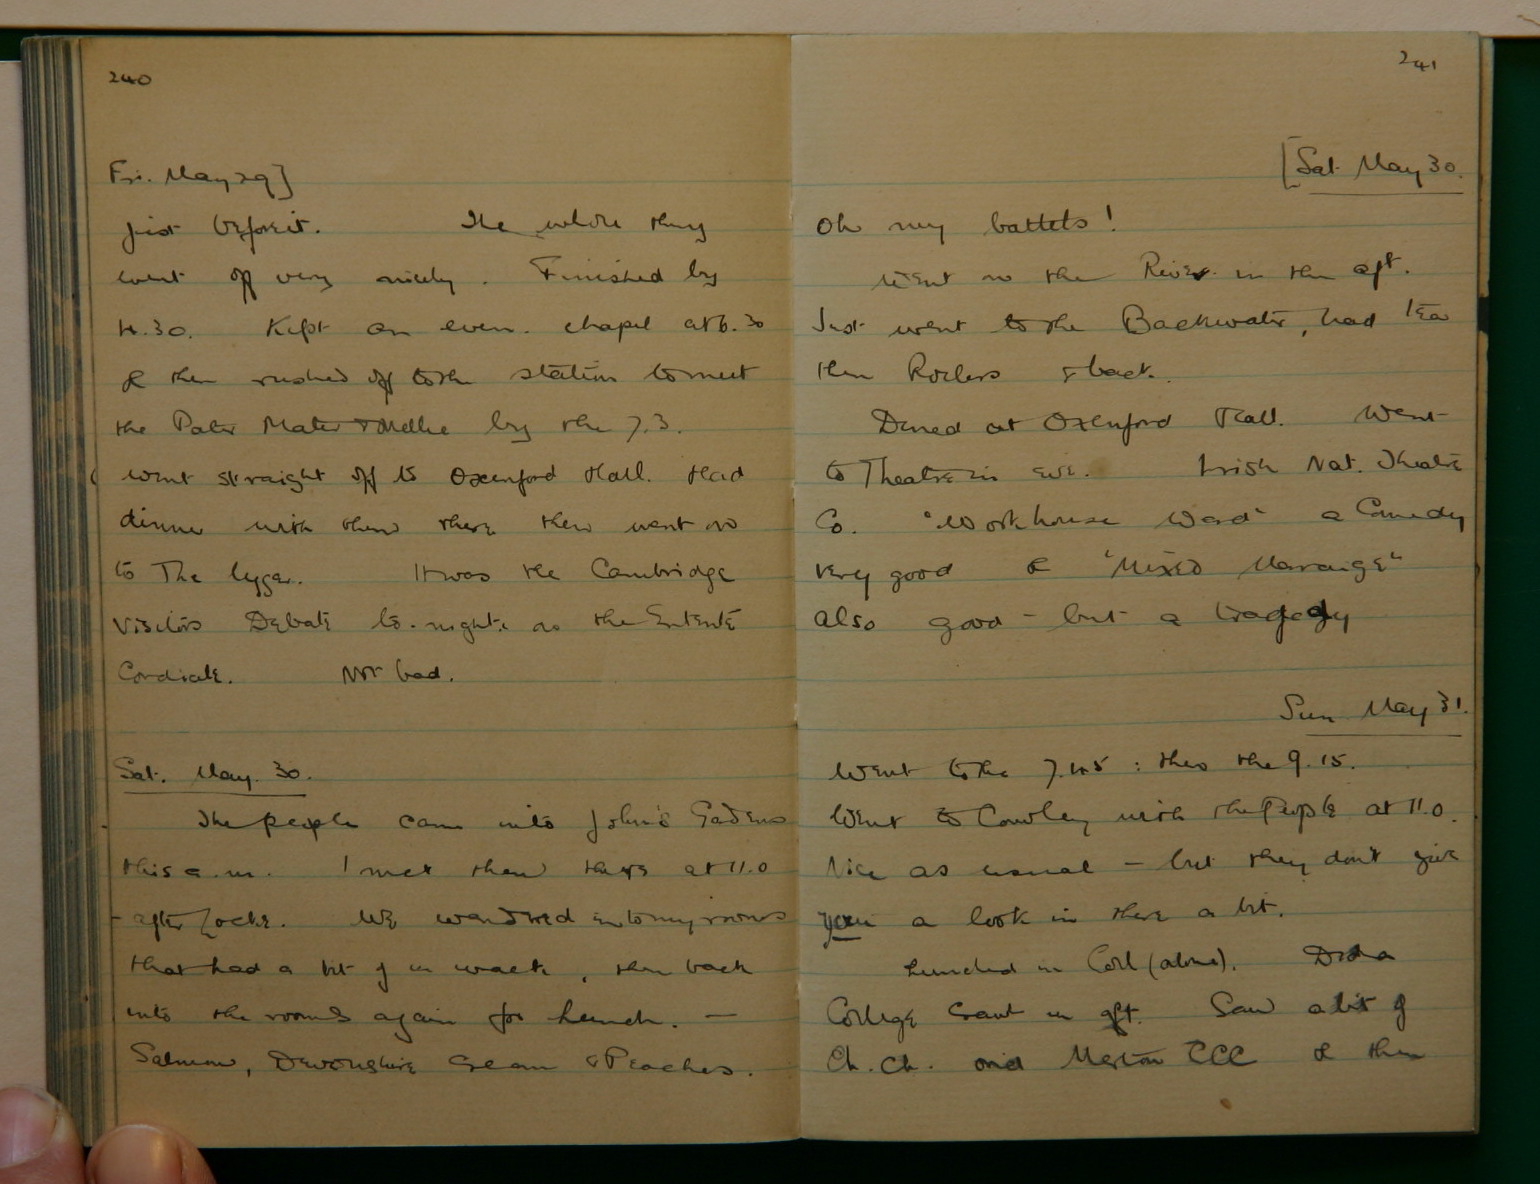 240
Fri. May 29]
just before it. The whole thing
went off very nicely. Finished by
4.30. Kept an even. chapel at 6.30
& then rushed off to the station to meet
the Pater Mater & Nellie by the 7.3.
went straight off to Oxenford Hall. Had
dinner with them there then went on
to The Union. It was the Cambridge
Visitors Debate to-night: on the Entente
Cordiale. Not bad.
Sat. May. 30.
The people came into John's Gardens
this a.m. I met them there at 11.0
after Locke. We wandered into my rooms
that had a bit of a walk, then back
into the rooms again for lunch. —
Salmon, Devonshire Cream & Peaches.
241
[Sat. May 30.
Oh my battels!
Went on the River in the aft.
Just went to the Backwater, had tea
then Rollers & back.
Dined at Oxenford Hall. Went
to Theatre in eve. Irish Nat. Theatre
Co. "Workhouse Ward" a Comedy
very good & "Mixed Marraige"
also good – but a tragedy
Sun May 31.
Went to the 7.45 : then the 9.15.
Went to Cowley with the People at 11.0.
Nice as usual – but they don't give
you a look in there a bit.
Lunched in Coll (alone). Did a
College Crawl in aft. Saw a bit of
Ch. Ch. and Merton CCC & then